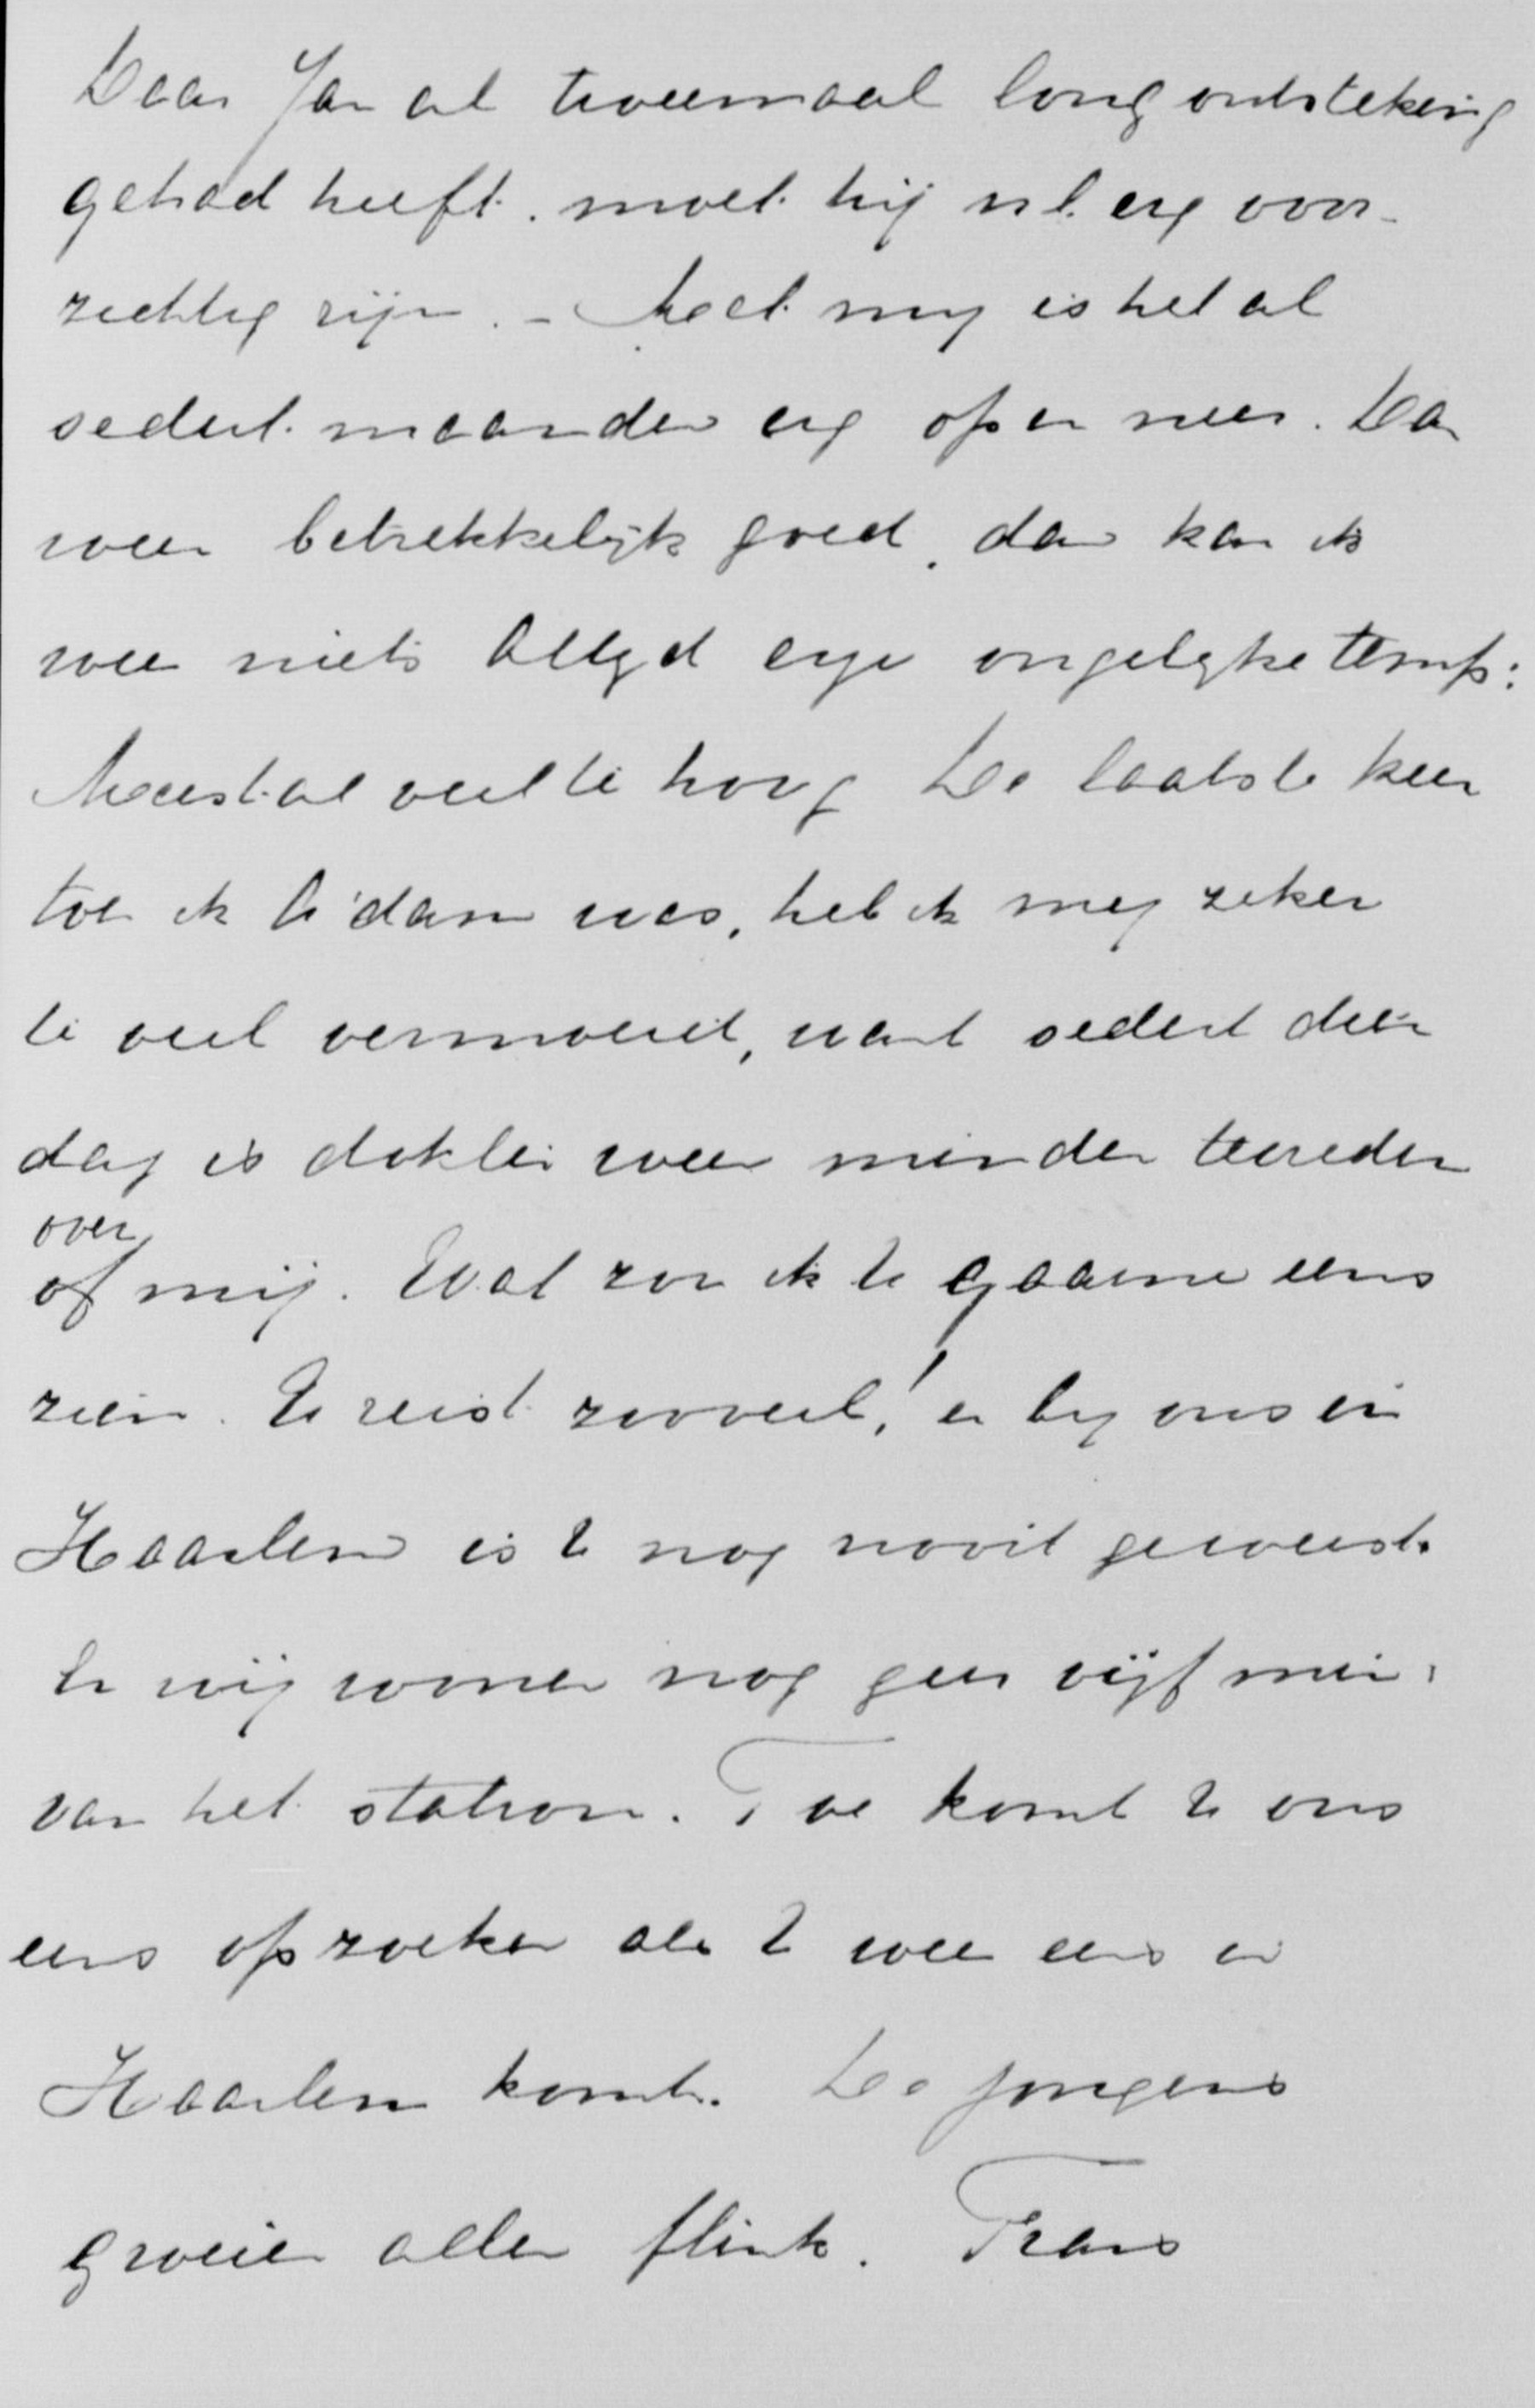 Daar Jan al tweemaal longontsteking
gehad heeft. moet hij nl. erg voor-
zichtig zijn. - Met my is het al
sedert maanden erg op en neer. Dan
weer betrekkelijk goed, dan kan ik
weer niets Altyd erge ongelyke temp:
Meestal veel te hoog De laatste keer
toen ik A'dam was, heb ik my zeker
te veel vermoeid, want sedert dien
dag is dokter weer minder tevreden
over
of mij. Wat zou ik U gaarne eens
zien. U reist zooveel! en by ons in
Haarlem is U nog nooit geweest.
En wij wonen nog geen vijf min:
van het station. Toe komt U ons
eens opzoeken als U weer eens in
Haarlem komt. De jongens
groeien allen flink. Frans